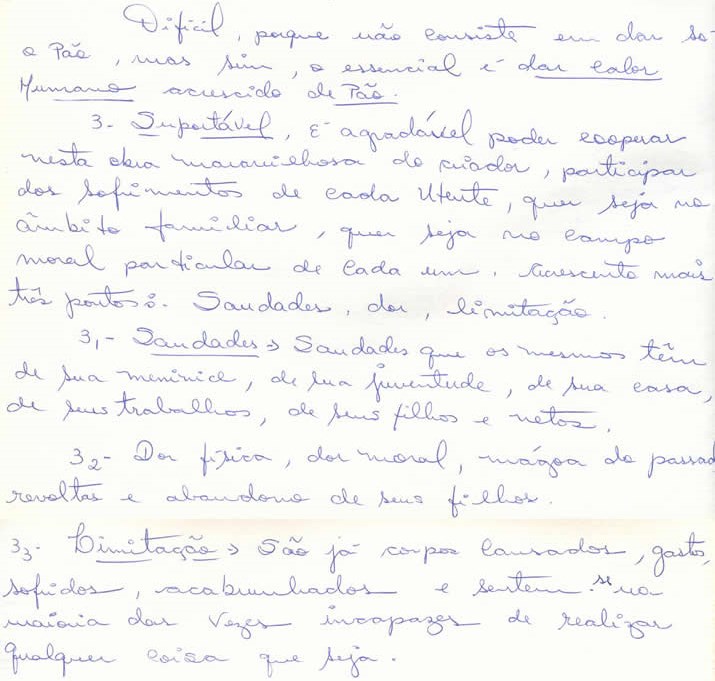 Difícil, porque não consiste em dar só
o Pão, mas sim, o essencial é dar calor
Humano acrescido de Pão.
3- Suportável, É agradável poder cooperar
nesta obra maravilhosa do criador, participar
dos sofrimentos de cada Utente, quer seja no
âmbito familiar, quer seja no campo
moral particular de cada um. Acrescento mais
três pontos:. Saudades, dor, limitação.
3,1- Saudades → Saudades que os mesmos têm
de sua meninice, de sua juventude, de sua casa,
de seus trabalhos, de seus filhos e netos.
3,2- Dor física, dor moral, mágoa do passad
revoltas e abandono de seus filhos.
3,3- Limitação → São já corpos cansados, gastos,
sofridos, acabrunhados e sentem-se na
maioria das vezes incapazes de realizar
qualquer coisa que seja.